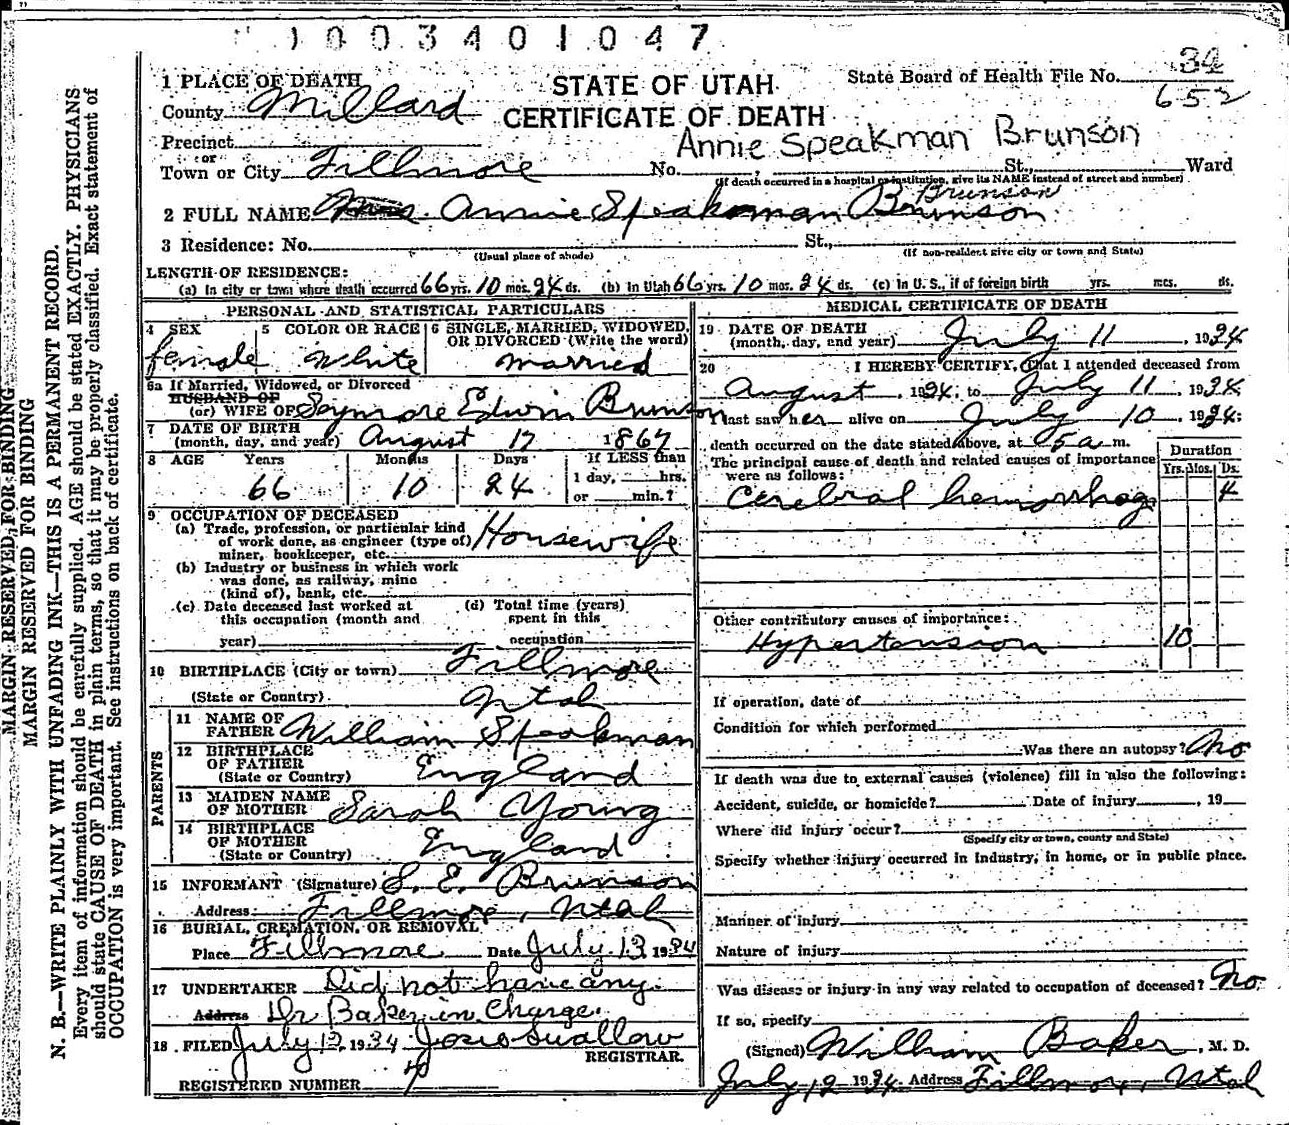 1003401047
1 PLACE OF DEATH STATE OF UTAH State Board of Health File No. 34
County Millard CERTIFICATE OF DEATH 652
Precinct Annie Speakman Brunson
or
Town or City Fillmore No. St., Ward
(If death occurred in a hospital or institution, give its NAME instead of street and number)
Brunson
2 FULL NAME Mrs. Annie Speakman Brunson
3 Residence: No. St.,
(Usual place of abode) (If non-resident give city or town and State)
LENGTH OF RESIDENCE:
(a) In city or town where death occurred 66 yrs. 10 mos. 24 ds. (b) In Utah 66 yrs. 10 mos. 24 ds. (c) In U. S., if of foreign birth yrs. mos. ds.
PERSONAL AND STATISTICAL PARTICULARS
4 SEX 5 COLOR OR RACE 6 SINGLE, MARRIED, WIDOWED,
OR DIVORCED (Write the word)
female White married
6a If Married, Widowed, or Divorced
HUSBAND OF
(or) WIFE OF Seymore Edwin Brunson
7 DATE OF BIRTH
(month, day, and year) August 17 1867
8 AGE Years Months Days If LESS than
1 day, hrs.
66 10 24 or min.?
9 OCCUPATION OF DECEASED
(a) Trade, profession, or particular kind
of work done, as engineer (type of) Housewife
miner, bookkeeper, etc.
(b) Industry or business in which work
was done, as railway, mine
(kind of), bank, etc.
(c) Date deceased last worked at (d) Total time (years)
this occupation (month and spent in this
year) occupation
10 BIRTHPLACE (City or town) Fillmore
(State or Country) Utah
PARENTS
11 NAME OF
FATHER William Speakman
12 BIRTHPLACE
OF FATHER England
(State or Country)
13 MAIDEN NAME
OF MOTHER Sarah Young
14 BIRTHPLACE
OF MOTHER England
(State or Country)
15 INFORMANT (Signature) S. E. Brunson
Address: Fillmore, Utah
16 BURIAL, CREMATION, OR REMOVAL
Place Fillmore Date July 13 1934
17 UNDERTAKER Did not have any
Address Dr Baker in Charge.
18 FILED July 12 1934 Josie Swallow
REGISTRAR.
REGISTERED NUMBER
MEDICAL CERTIFICATE OF DEATH
19 DATE OF DEATH
(month, day, and year) July 11, 1934
20 I HEREBY CERTIFY, That I attended deceased from
August, 1934, to July 11, 1934
I last saw her alive on July 10 1934:
death occurred on the date stated above, at 5 a m.
The principal cause of death and related causes of importance
were as follows:
Duration
Yrs. Mos. Ds.
Cerebral hemorrhag 4
Other contributory causes of importance:
Hypertension 10
If operation, date of
Condition for which performed
Was there an autopsy? no
If death was due to external causes (violence) fill in also the following:
Accident, suicide, or homicide? Date of injury, 19
Where did injury occur?
(Specify city or town, county and State)
Specify whether injury occurred in industry, in home, or in public place.
Manner of injury
Nature of injury
Was disease or injury in any way related to occupation of deceased? No.
If so, specify
(Signed) William Baker, M. D.
July 12 1934. Address Fillmore, Utah
MARGIN RESERVED FOR BINDING
MARGIN RESERVED FOR BINDING
N. B.—WRITE PLAINLY WITH UNFADING INK—THIS IS A PERMANENT RECORD.
Every item of information should be carefully supplied. AGE should be stated EXACTLY. PHYSICIANS
should state CAUSE OF DEATH in plain terms, so that it may be properly classified. Exact statement of
OCCUPATION is very important. See instructions on back of certificate.